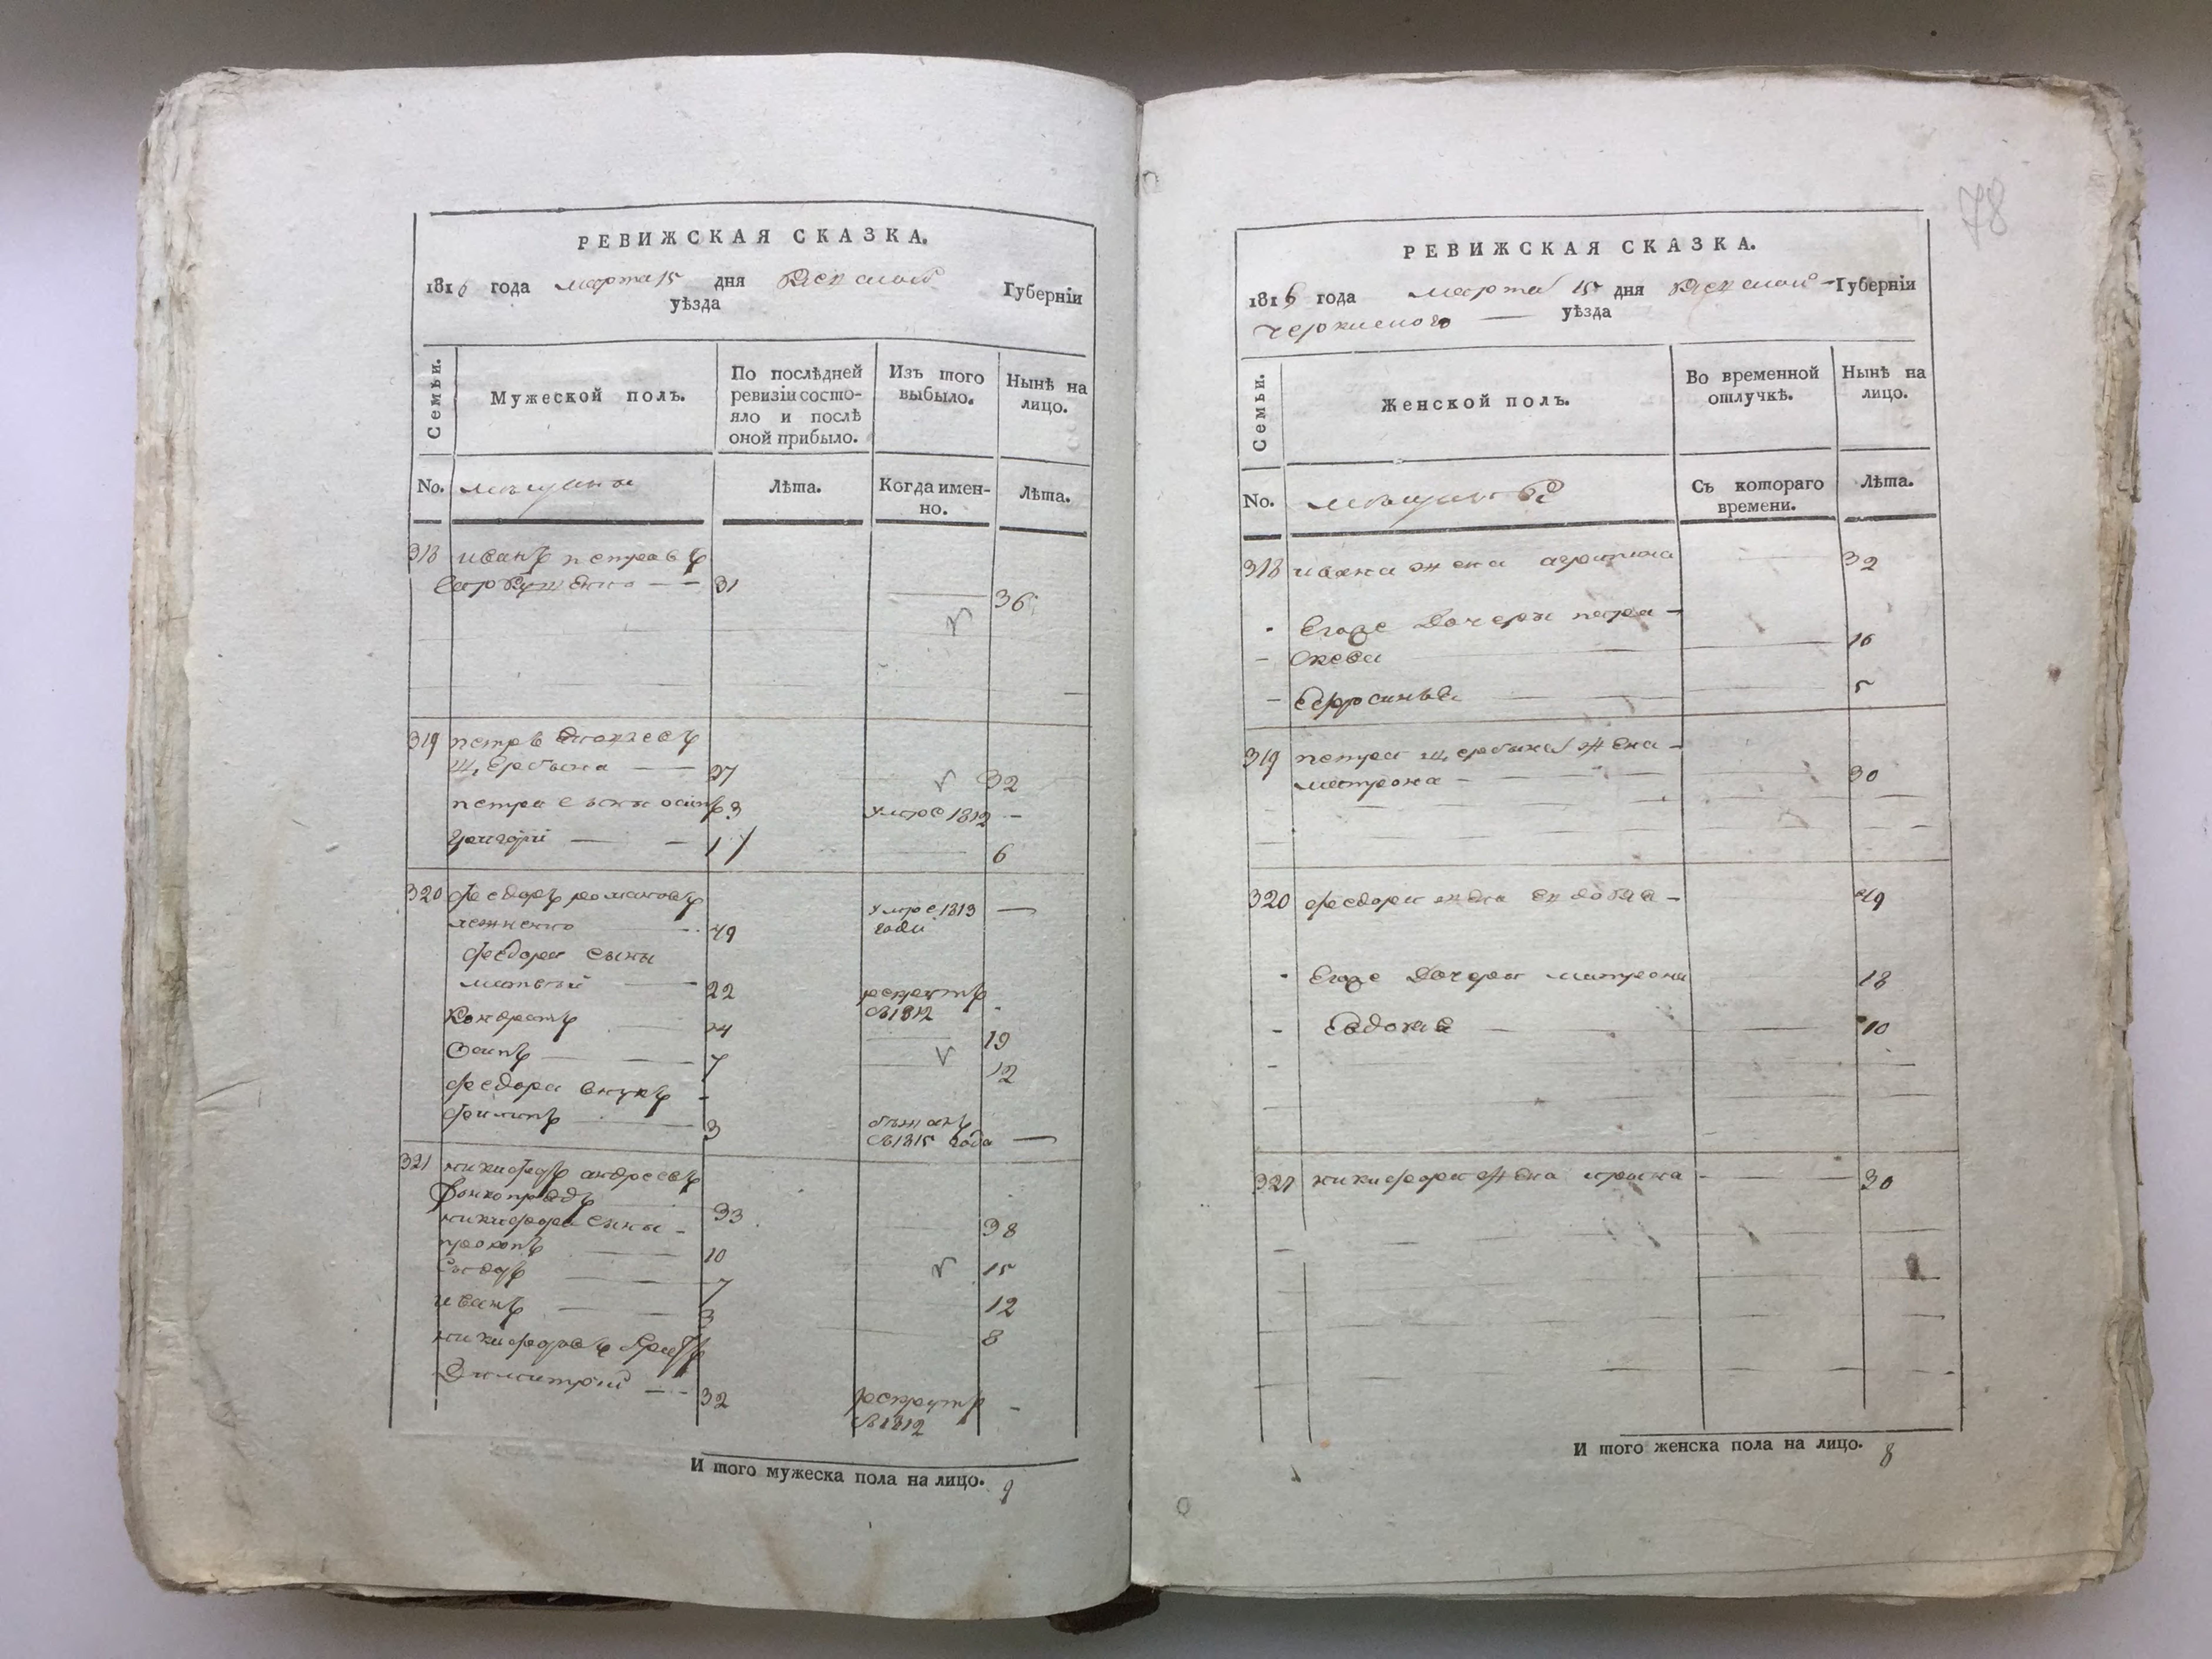 РЕВИЖСКАЯ СКАЗКА.
1816 года марта 15 дня Губерніи
уѣзда
Семьи.
Мужеской полъ.
По послѣдней ревизіи состо-
яло и послѣ
оной прибыло.
Изъ того
выбыло.
Нынѣ на
лицо.
No. мѣщяны
Лѣта.
Когда имен-
но.
Лѣта.
318 иванъ петровъ
31
36
319 петръ
щербина 27 32
петра сыны осипъ 3 умре 1812 —
григорій 1 6
320 федоръ романовъ умре 1813 —
49 годи
федора сыны
матвѣй 22 рекрутъ
въ 1812 -
Кондратъ 14 19
Осипъ 7 12
федора внукъ -
филипъ 3 бѣжалъ
въ 1815 года —
321 никифоръ андреевъ
33
никифора сыны - 38
прокопъ 10 15
7 12
иванъ 3 8
никифоровъ братъ
Димитрій 32 рекрутъ -
въ 1812
И того мужеска пола на лицо. 9
78
РЕВИЖСКАЯ СКАЗКА.
1816 года марта 15 дня Губерніи
уѣзда
Семьи.
Женской полъ.
Во временной
отлучкѣ.
Нынѣ на
лицо.
No.
Съ котораго
времени.
Лѣта.
318 ивана жена агрипина 32
- Егоже дочери парас-
- кева 16
- Ефросинья 5
319 петра щербина жена -
матрона - 30
320 федора жена 49
- Егоже дочери матрона 18
- Евдокия 10
321 никифора жена ирина 30
И того женска пола на лицо. 8